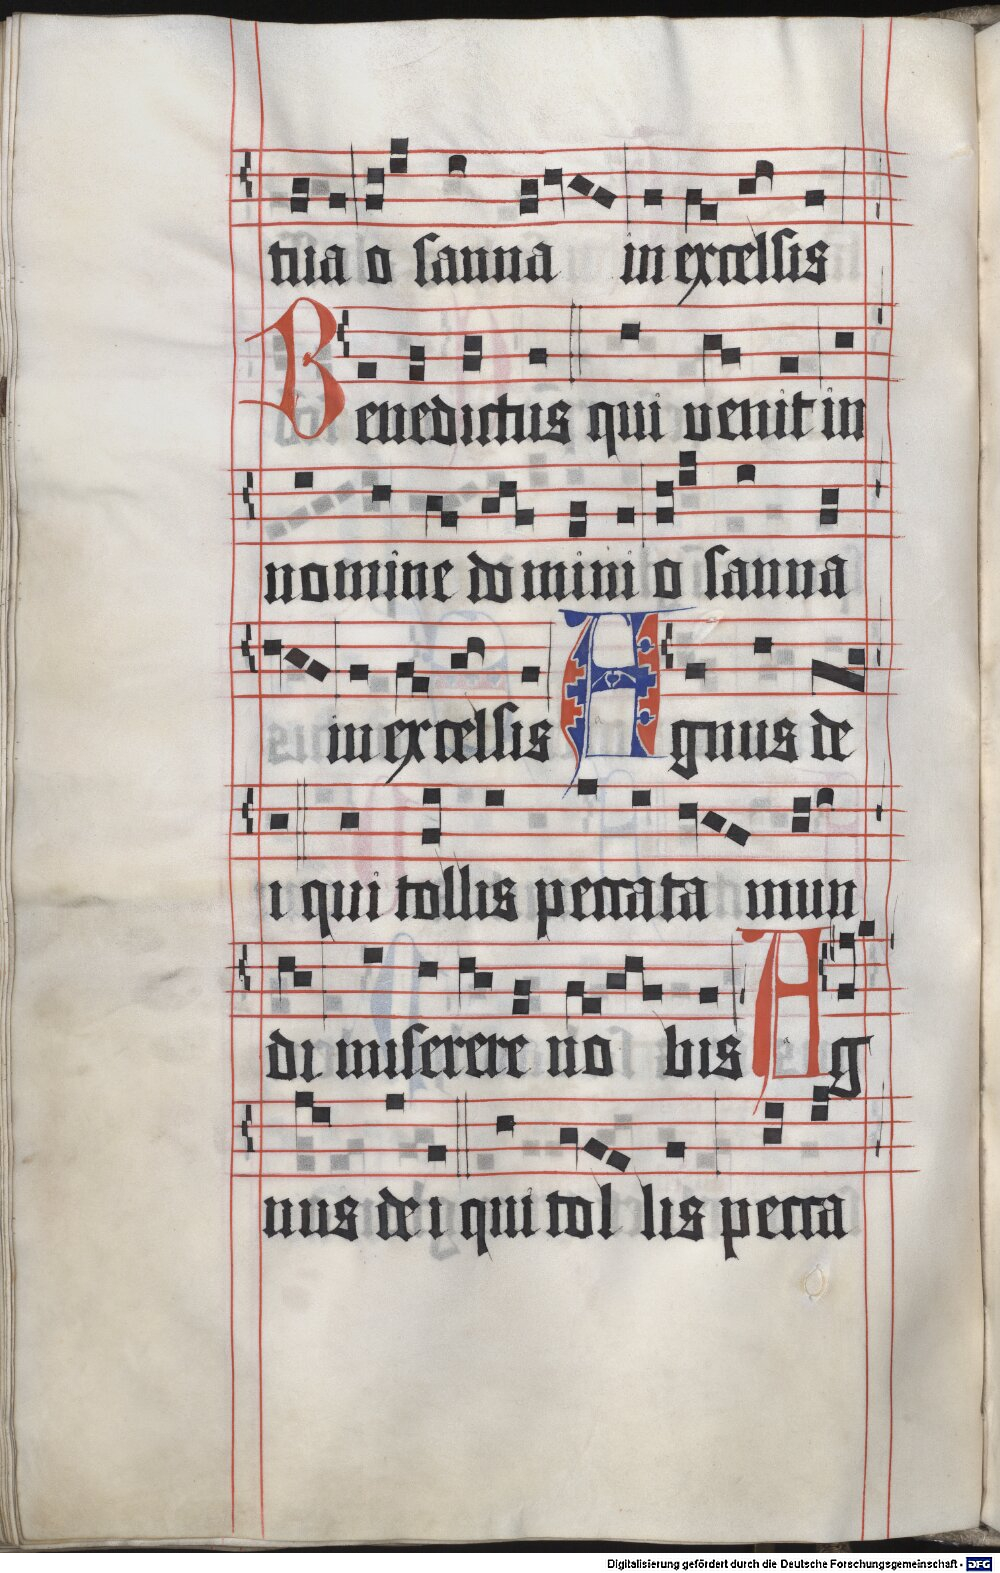 tua o sanna in excelsis
Benedictus qui venit in
nomine domini o sanna
in excelsis Agnus de
i qui tollis peccata mun
di miserere no bis Ag
nus de i qui tol lis pecca
Digitalisierung gefördert durch die Deutsche Forschungsgemeinschaft - DFG